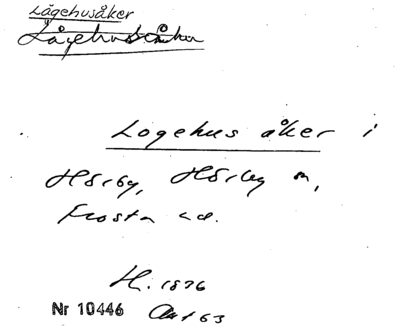 Lågehusåker
Lågehusåker
Logehus åker i
Hörby, Hörby sn,
Frosta hd.
H. 1826
Nr 10446 Akt 63